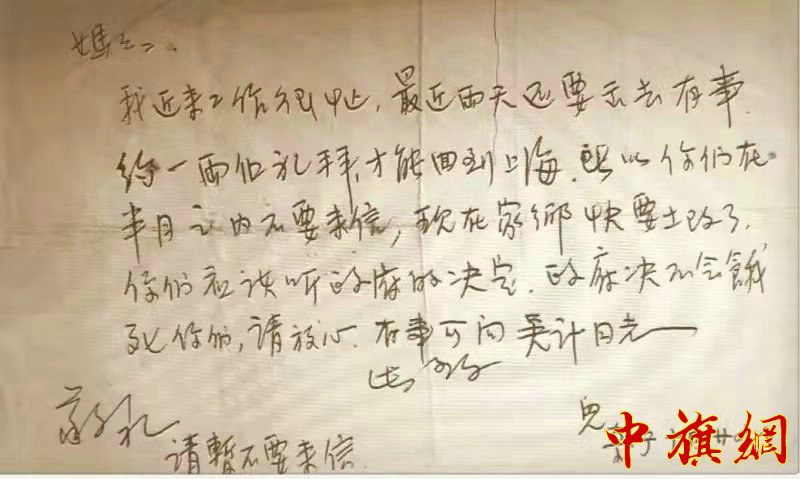 妈:
我近来工作很忙, 最近两天还要出去有事.
约一两个礼拜才能回到上海. 所以你们在
半月之内不要来信, 现在家鄉快要土改了.
你们应该听政府的决定. 政府决不会餓
死你们, 請放心. 有事可向吴
此致
敬礼
請暫不要来信.
兒
中旗網